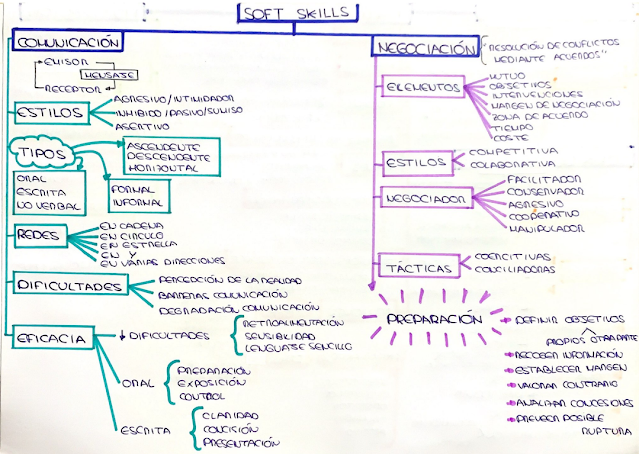 SOFT SKILLS
COMUNICACIÓN
EMISOR
MENSAJE
RECEPTOR
ESTILOS
AGRESIVO/INTIMIDADOR
INHIBIDO/PASIVO/SUMISO
ASERTIVO
TIPOS
ASCENDENTE
DESCENDENTE
HORIZONTAL
ORAL
ESCRITA
NO VERBAL
FORMAL
INFORMAL
REDES
EN CADENA
EN CIRCULO
EN ESTRELLA
EN Y
EN VARIAS DIRECCIONES
DIFICULTADES
PERCEPCIÓN DE LA REALIDAD
BARRERAS COMUNICACIÓN
DEGRADACIÓN COMUNICACIÓN
EFICACIA
↓ DIFICULTADES
RETROALIMENTACIÓN
SENSIBILIDAD
LENGUAJE SENCILLO
ORAL
PREPARACIÓN
EXPOSICIÓN
CONTROL
ESCRITA
CLARIDAD
CONCISIÓN
PRESENTACIÓN
NEGOCIACIÓN
"RESOLUCIÓN DE CONFLICTOS
MEDIANTE ACUERDOS"
ELEMENTOS
MUTUO
OBJETIVOS
INTERVENCIONES
MARGEN DE NEGOCIACIÓN
ZONA DE ACUERDO
TIEMPO
COSTE
ESTILOS
COMPETITIVA
COLABORATIVA
NEGOCIADOR
FACILITADOR
CONSERVADOR
AGRESIVO
COOPERATIVO
MANIPULADOR
TÁCTICAS
COERCITIVAS
CONCILIADORAS
PREPARACIÓN
DEFINIR OBJETIVOS
PROPIOS OTRA PARTE
RECOGER INFORMACIÓN
ESTABLECER MARGEN
VALORAR CONTRARIO
ANALIZAR CONCESIONES
PREVEER POSIBLE
RUPTURA